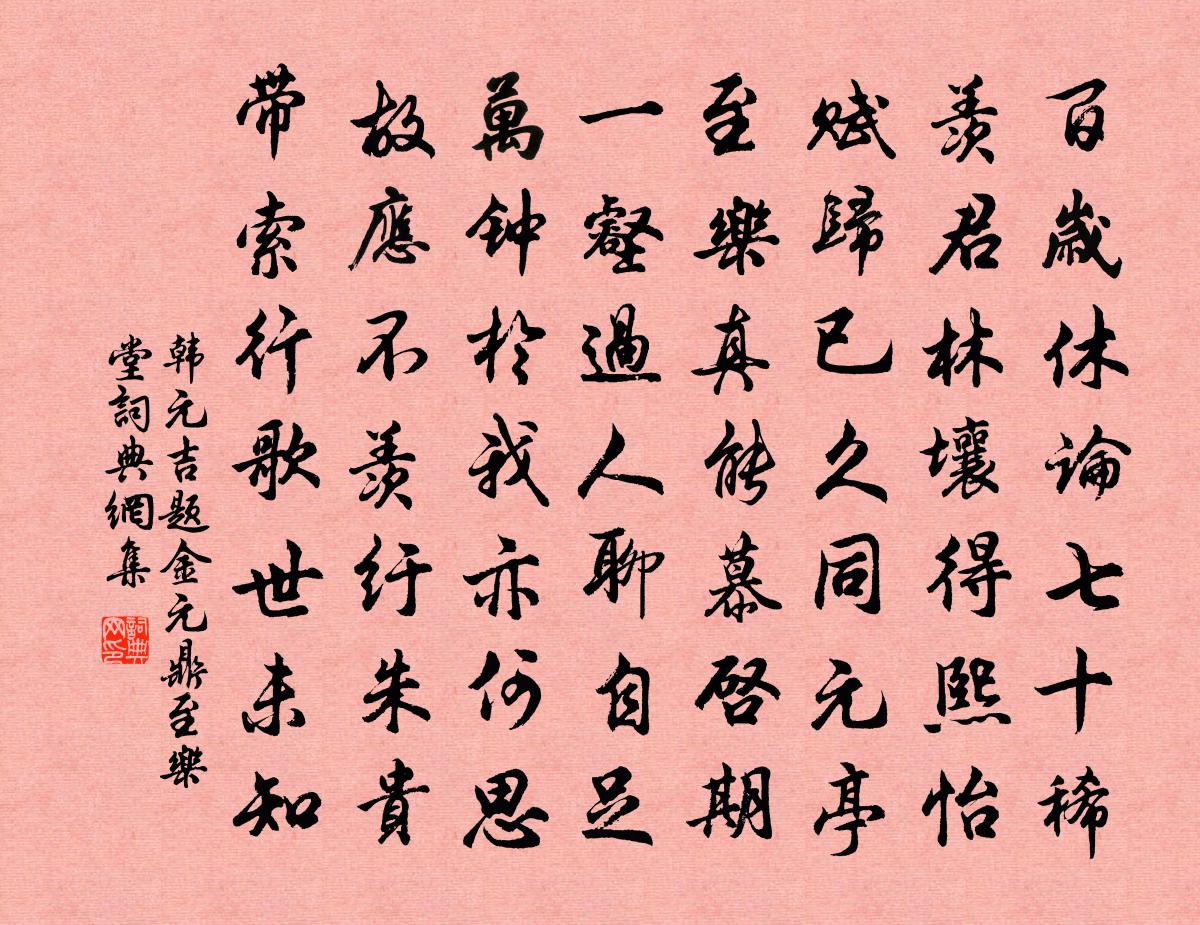 百歲休論七十稀
羨君林壤得熙怡
賦歸已久同元亭
至樂真能慕啓期
一壑過人聊自足
萬钟於我亦何思
故應不羨纡朱貴
带索行歌世未知
韩元吉题金元鼎至樂
堂詞典網集
詞典网印